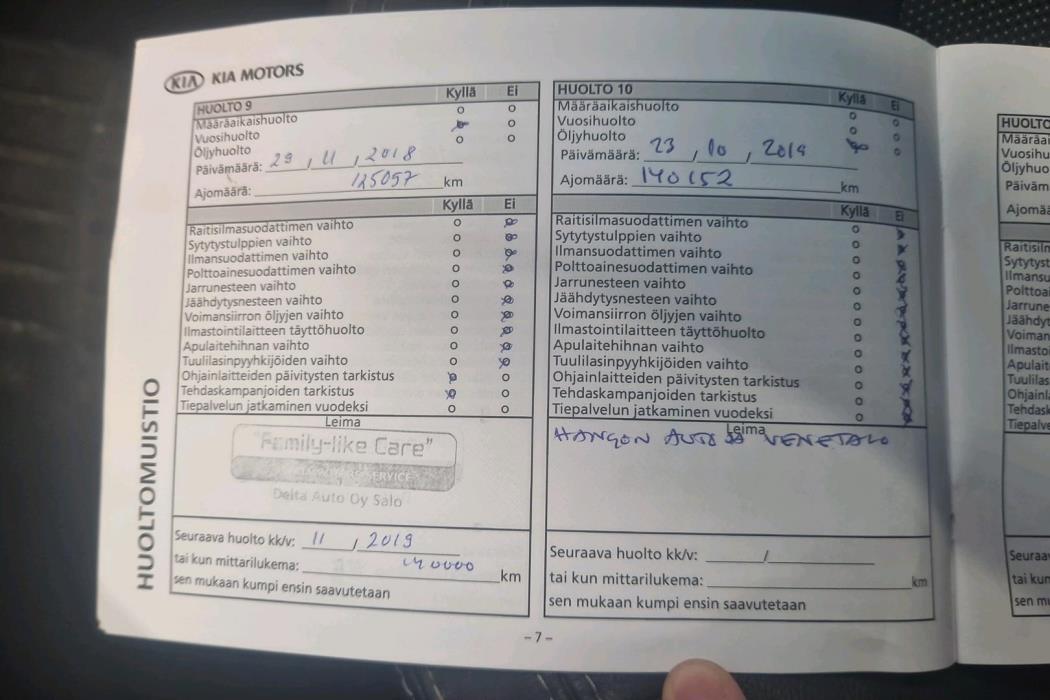 KIA KIA MOTORS
HUOLTO 9 Kyllä Ei
Määräaikaishuolto
Vuosihuolto
Öljyhuolto
Päivämäärä: 29 , 11 , 2018
Ajomäärä: 125097 km
Kyllä Ei
Raitisilmasuodattimen vaihto
Sytytystulppien vaihto
Ilmansuodattimen vaihto
Polttoainesuodattimen vaihto
Jarrunesteen vaihto
Jäähdytysnesteen vaihto
Voimansiirron öljyjen vaihto
Ilmastointilaitteen täyttöhuolto
Apulaitehihnan vaihto
Tuulilasinpyyhkijöiden vaihto
Ohjainlaitteiden päivitysten tarkistus
Tehdaskampanjoiden tarkistus
Tiepalvelun jatkaminen vuodeksi
Leima
"Family-like Care"
SERVICE
Delta Auto Oy Salo
Seuraava huolto kk/v: 11 / 2019
tai kun mittarilukema: 140000 km
sen mukaan kumpi ensin saavutetaan
HUOLTOMUISTIO
HUOLTO 10 Kyllä Ei
Määräaikaishuolto
Vuosihuolto
Öljyhuolto
Päivämäärä: 23 , 10 , 2019
Ajomäärä: 140152 km
Kyllä Ei
Raitisilmasuodattimen vaihto
Sytytystulppien vaihto
Ilmansuodattimen vaihto
Polttoainesuodattimen vaihto
Jarrunesteen vaihto
Jäähdytysnesteen vaihto
Voimansiirron öljyjen vaihto
Ilmastointilaitteen täyttöhuolto
Apulaitehihnan vaihto
Tuulilasinpyyhkijöiden vaihto
Ohjainlaitteiden päivitysten tarkistus
Tehdaskampanjoiden tarkistus
Tiepalvelun jatkaminen vuodeksi
Leima
HANGON AUTO JA VENETALO
Seuraava huolto kk/v: /
tai kun mittarilukema: km
sen mukaan kumpi ensin saavutetaan
- 7 -
HUOLTO
Määräai
Vuosihu
Öljyhuo
Päiväm
Ajomää
Raitisiln
Sytytyst
Ilmansu
Polttoai
Jarrune
Jäähdyt
Voiman
Ilmasto
Apulait
Tuulilas
Ohjainl
Tehdask
Tiepalve
Seuraav
tai kun
sen m